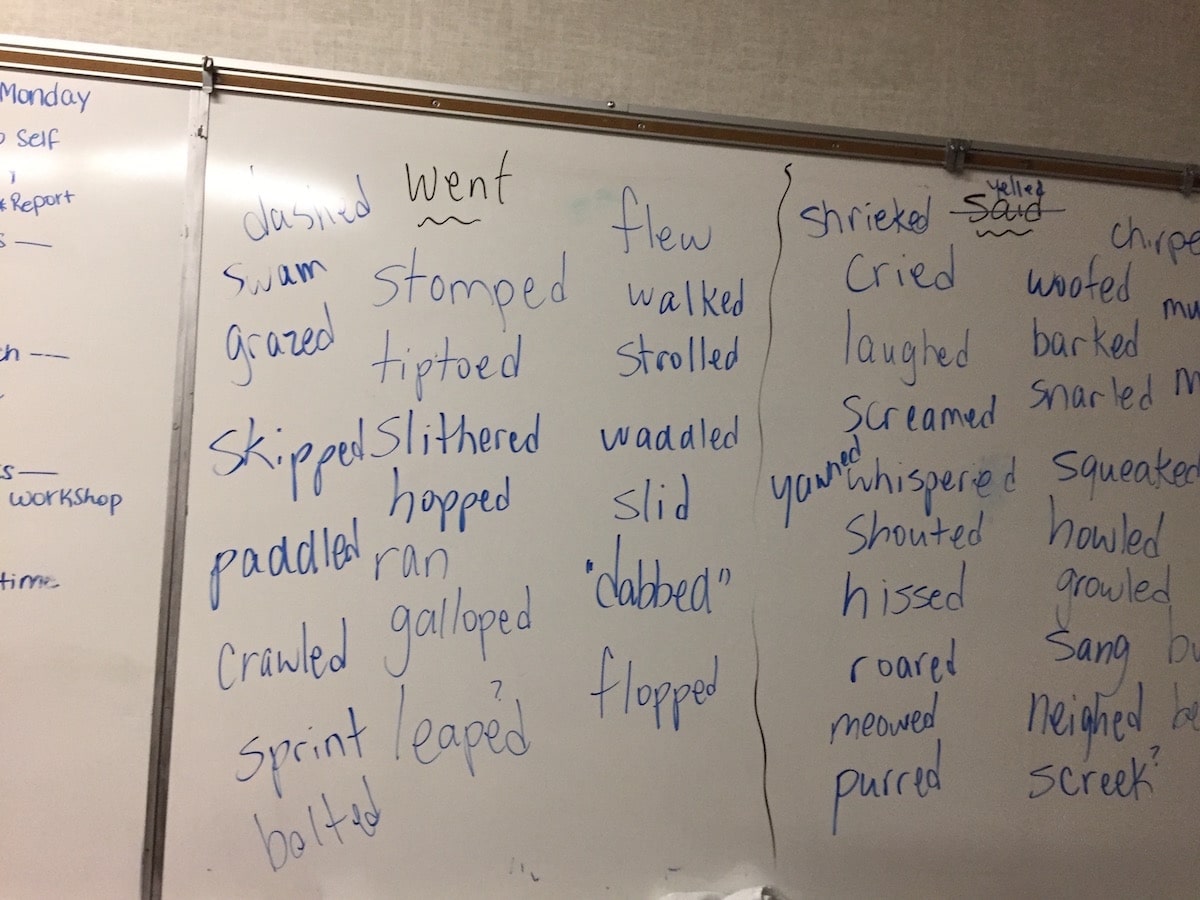 Monday
Self
*Report
Workshop
time
Went
dashed
swam
grazed
skipped
paddled
crawled
sprint
bolted
stomped
tiptoed
slithered
hopped
ran
galloped
leaped?
flew
walked
strolled
waddled
slid
"dabbed"
flopped
said
yelled
shrieked
cried
laughed
screamed
yawned
whispered
shouted
hissed
roared
meowed
purred
woofed
barked
snarled
squeaked
howled
growled
sang
neighed
screek?